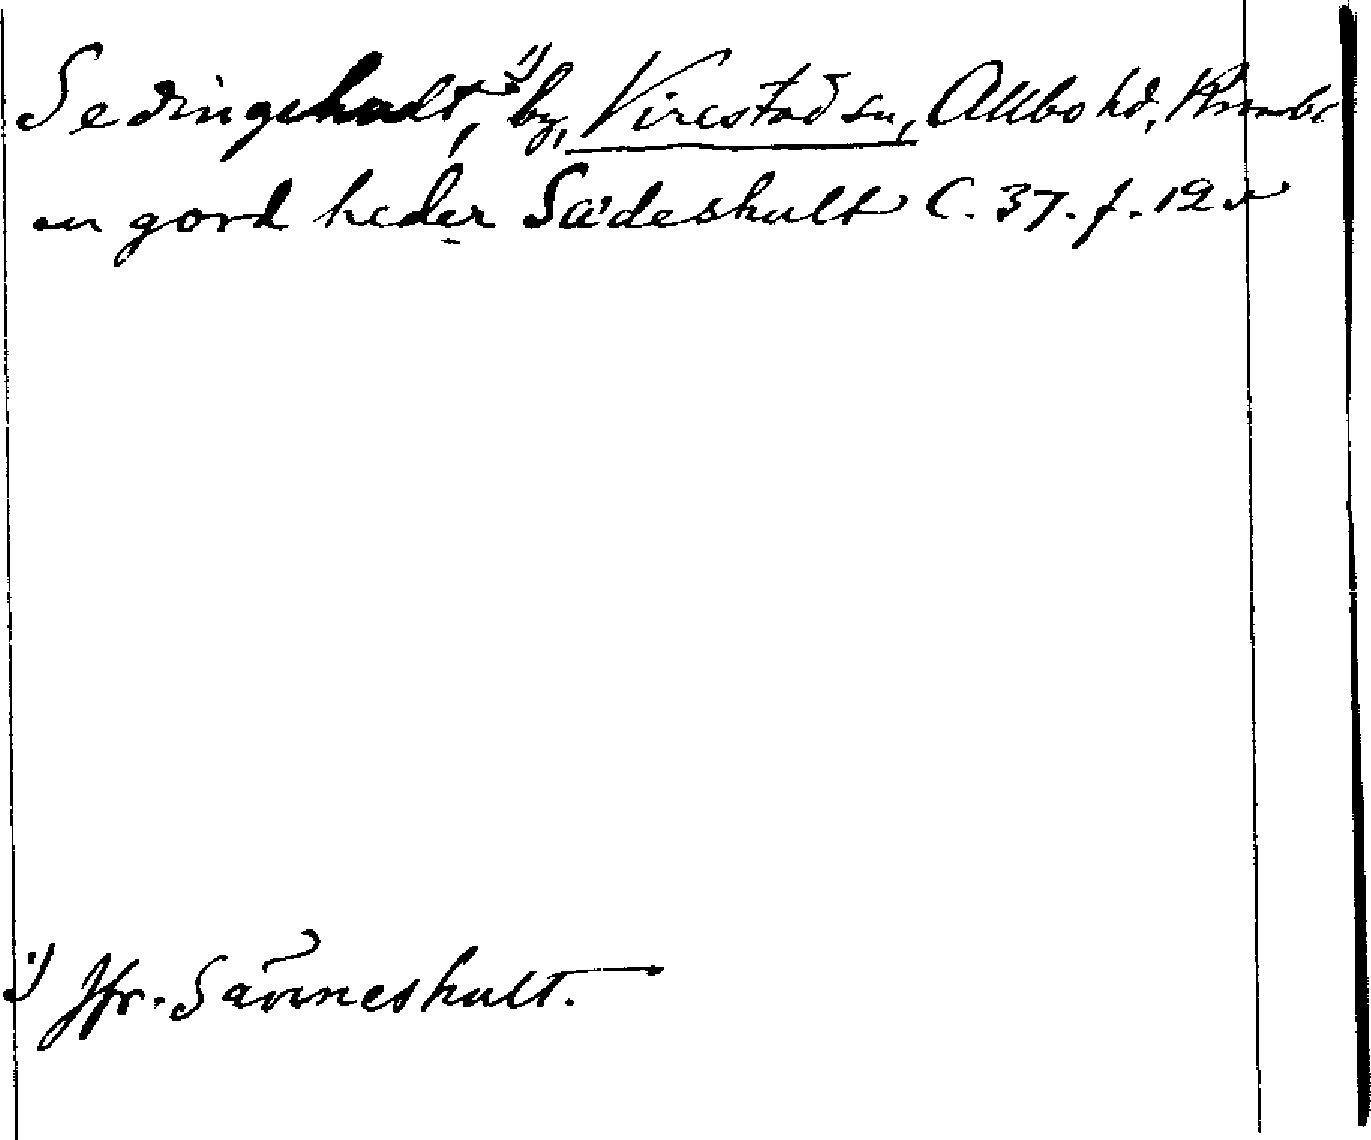 Sedingehult, ¹⁾ by, Virestad sn, Allbo hd, Kronobr
en gord heder Sädeshult C. 37. f. 12 v
¹⁾ Jfr. Sänneshult.